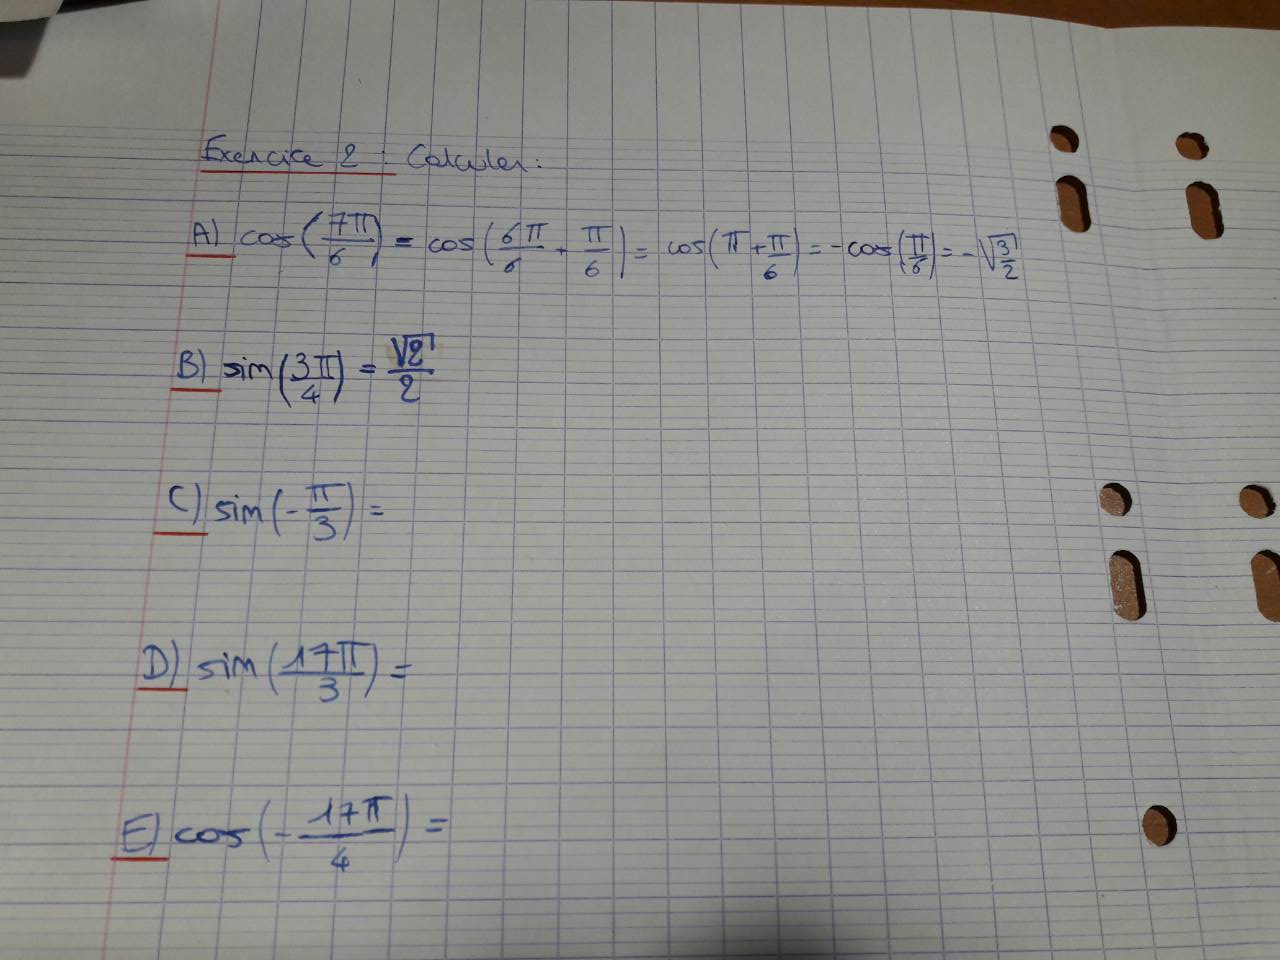 Exercice 2 : Calculer :
A) cos(7π/6) = cos(6π/6 + π/6) = cos(π + π/6) = -cos(π/6) = -√(3/2)
B) sin(3π/4) = √2/2
C) sin(-π/3) =
D) sin(17π/3) =
E) cos(-17π/4) =